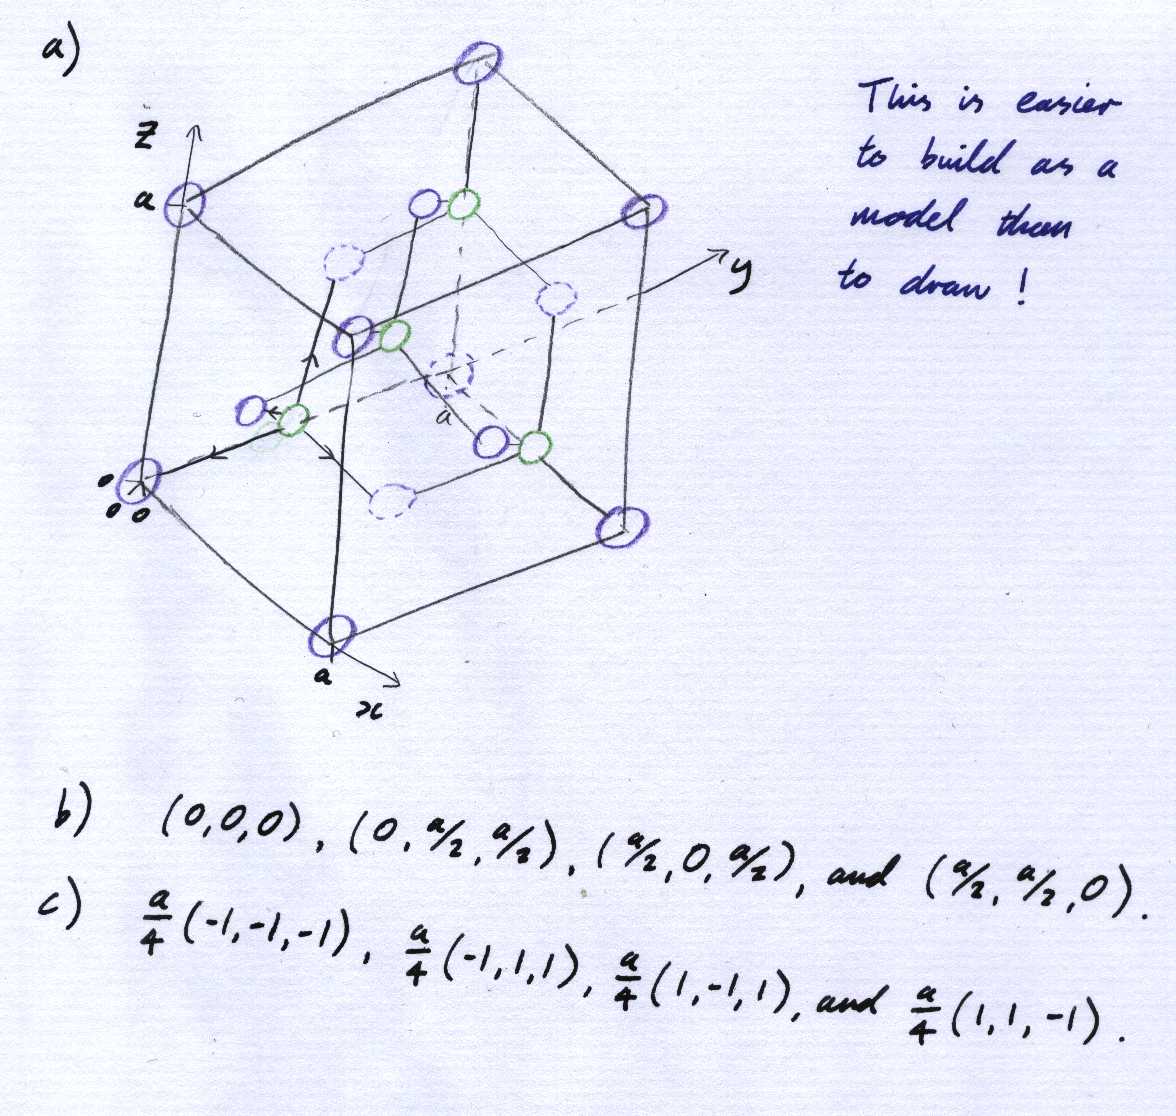 a)
This is easier
to build as a
model than
to draw !
z
a
y
a
0
0 0
a
x
b) (0,0,0), (0, a/2, a/2), (a/2, 0, a/2), and (a/2, a/2, 0).
c) a/4 (-1,-1,-1), a/4 (-1,1,1), a/4 (1,-1,1), and a/4 (1,1,-1).